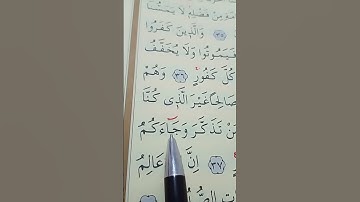 مِنْ فَضْلِهِ لَا يَمَسُّنَا
٣٥ وَالَّذِينَ كَفَرُوا
فَيَمُوتُوا وَلَا يُخَفَّفُ
كُلَّ كَفُورٍ ٣٦ وَهُمْ
صَالِحًا غَيْرَ الَّذِي كُنَّا
مَنْ تَذَكَّرَ وَجَاءَكُمُ
٣٧ إِنَّ عَالِمُ